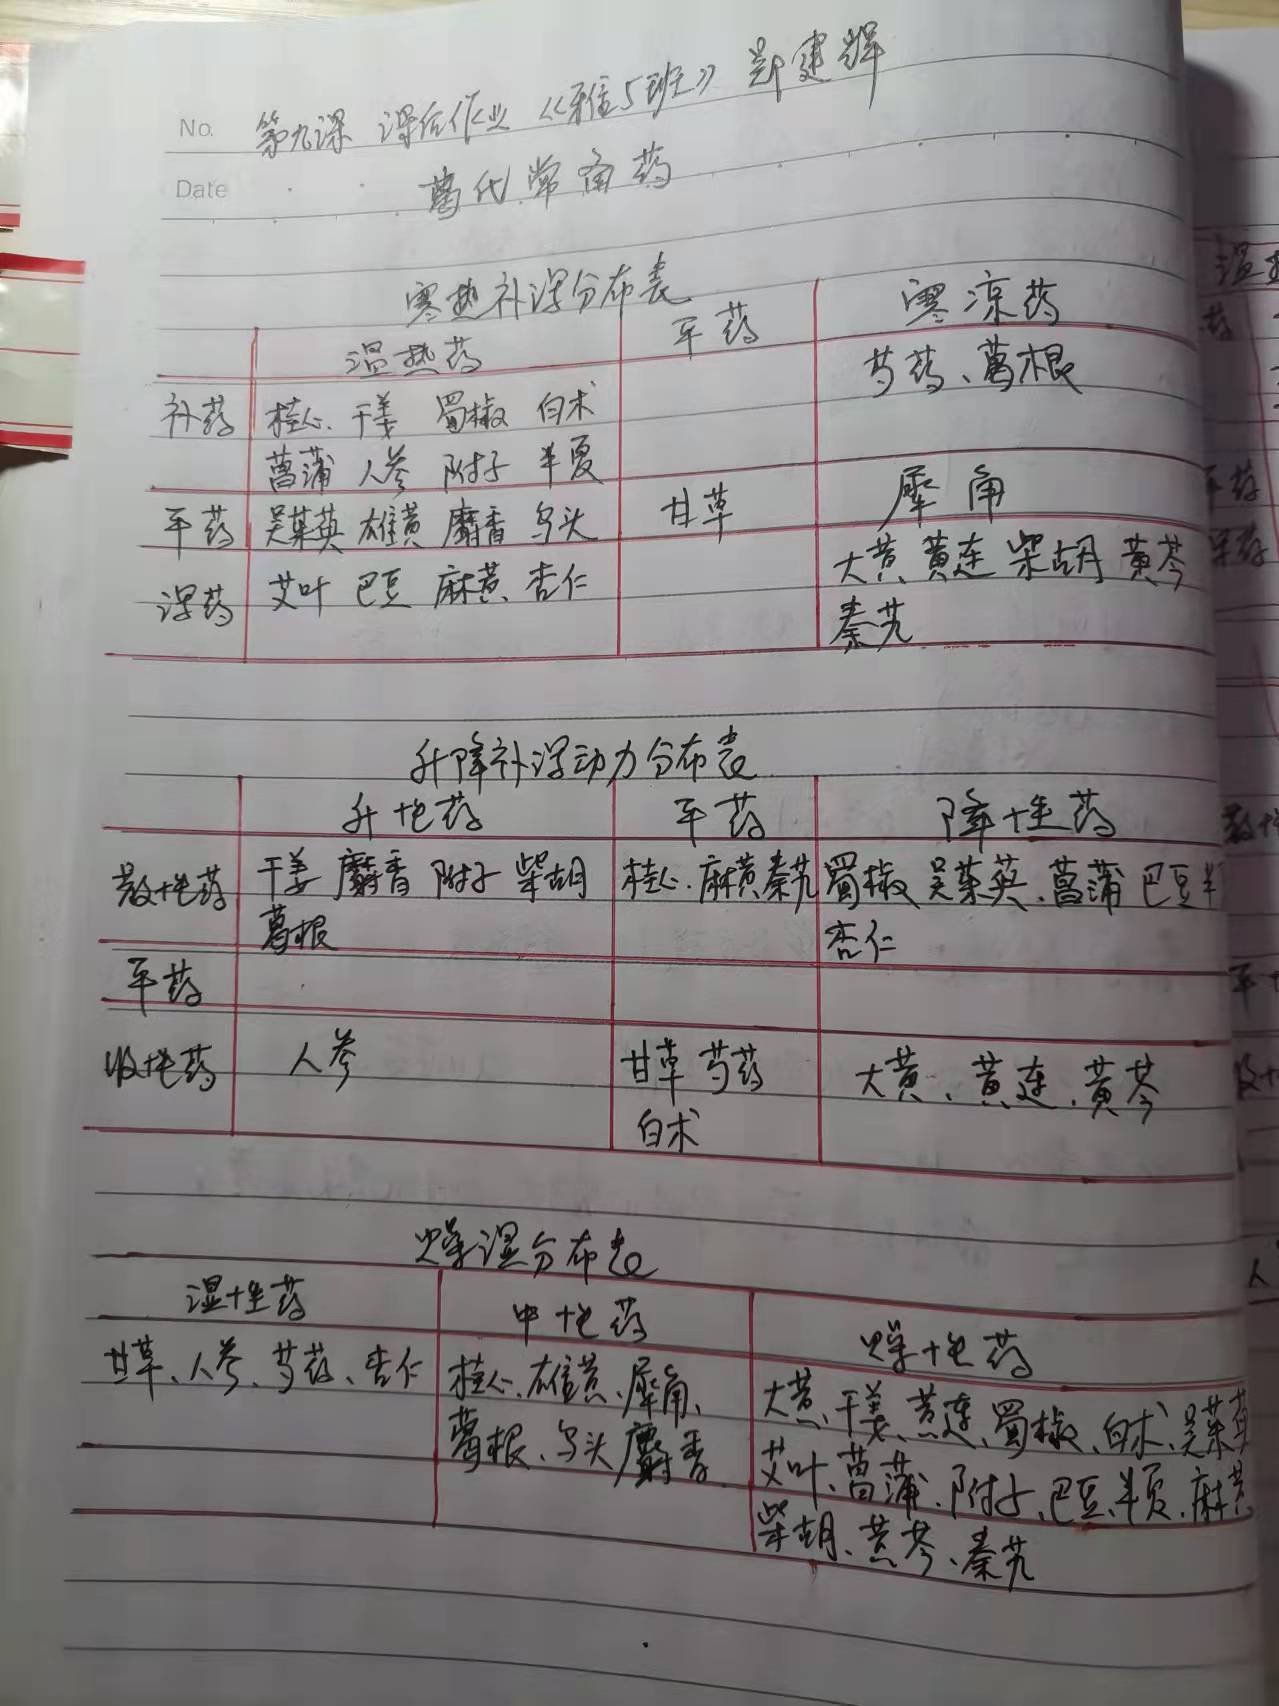 No. 第九课 课后作业 《雅信5班》 郑建辉
Date
葛代常角药
寒热补泻分布表
温热药 平药 寒凉药
补药 桂心、干姜 蜀椒 白术 芍药、葛根
菖蒲 人参 附子 半夏
平药 吴茱萸 雄黄 麝香 乌头 甘草 犀角
泻药 艾叶 巴豆 麻黄、杏仁 大黄、黄连 柴胡 黄芩
秦艽
升降补泻动力分布表
升性药 平药 降性药
散性药 干姜 麝香 附子 柴胡 桂心、麻黄秦艽 蜀椒 吴茱萸、菖蒲 巴豆半
葛根 杏仁
平药
收性药 人参 甘草 芍药 大黄、黄连、黄芩
白术
燥湿分布表
湿性药 中性药 燥性药
甘草、人参、芍药、杏仁 桂心、雄黄、犀角、 大黄、干姜、黄连、蜀椒、白术、吴茱萸
葛根、乌头 麝香 艾叶、菖蒲、附子、巴豆、半夏、麻黄
柴胡、黄芩、秦艽